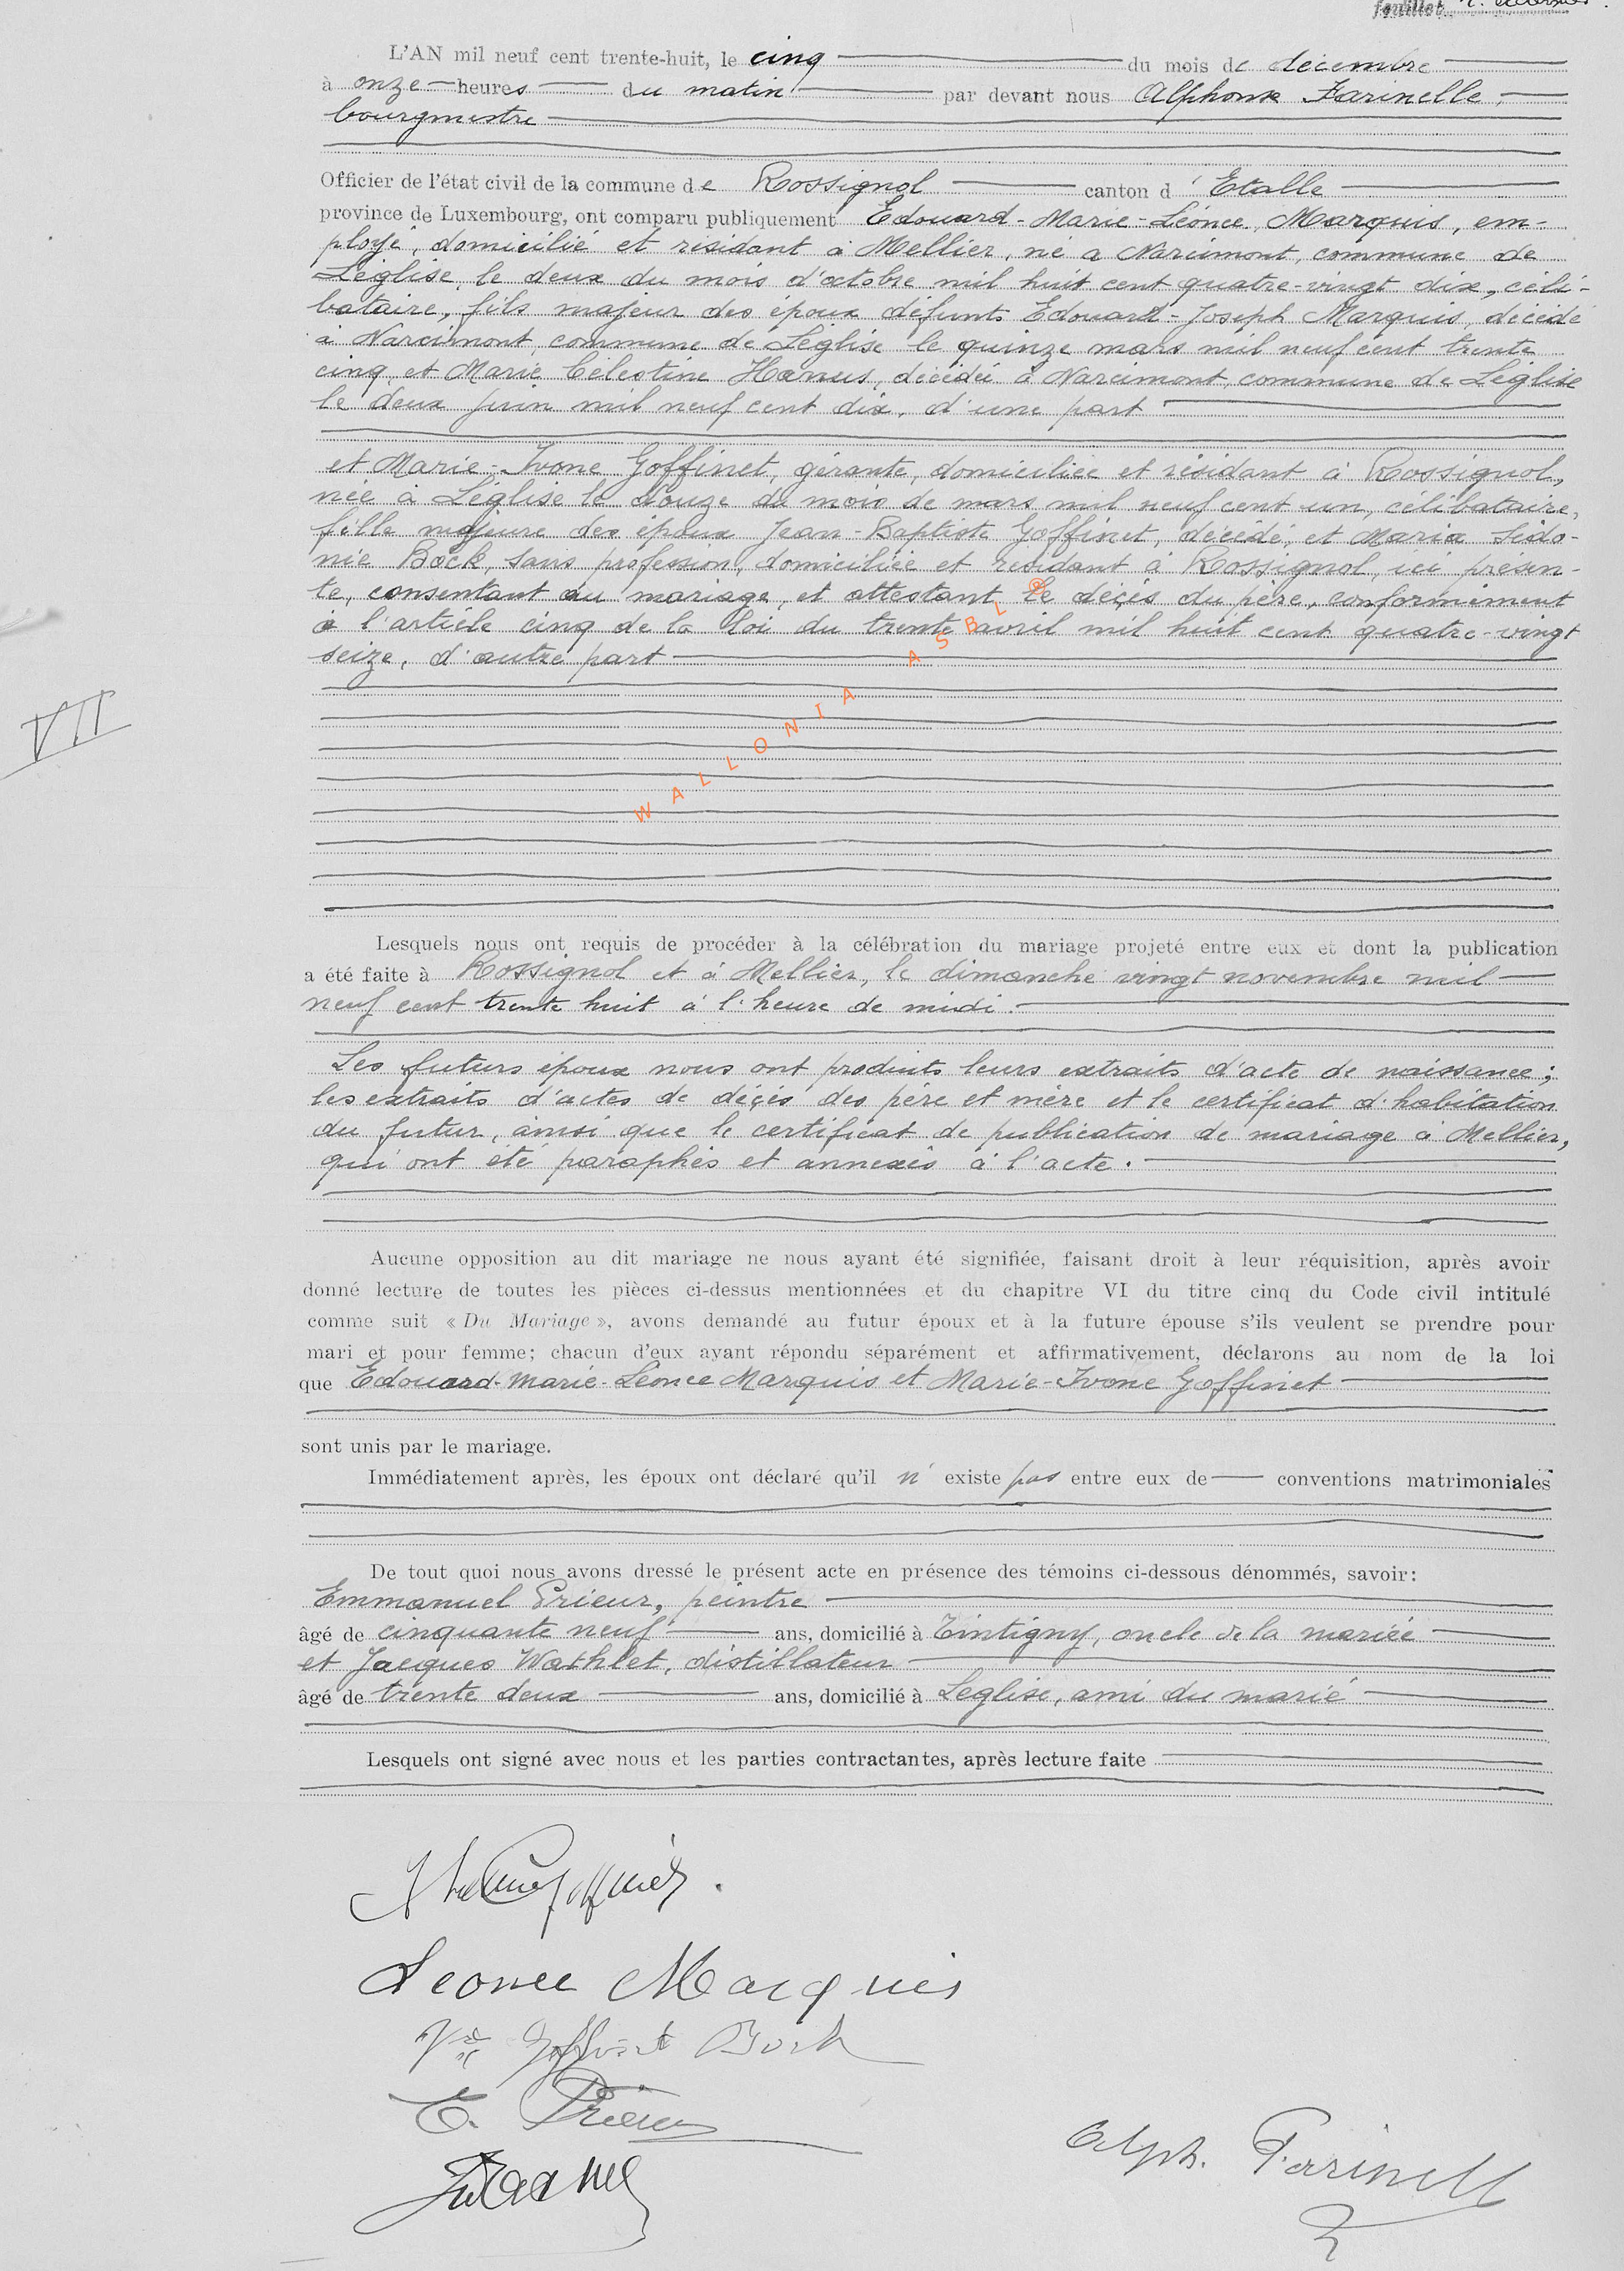 feuillet
L'AN mil neuf cent trente-huit, le cinq du mois de décembre
à onze heures du matin par devant nous Alphonse Farinelle,
bourgmestre
Officier de l'état civil de la commune de Rossignol canton d'Etalle
province de Luxembourg, ont comparu publiquement Edouard-Marie-Léonce Marquis, em-
ployé, domicilié et résidant à Mellier, né à Narcimont, commune de
Léglise, le deux du mois d'octobre mil huit cent quatre-vingt dix, céli-
bataire, fils majeur des époux défunts Edouard-Joseph Marquis, décédé
à Narcimont, commune de Léglise le quinze mars mil neuf cent trente
cinq, et Marie Célestine Hanus, décédée à Narcimont, commune de Léglise
le deux juin mil neuf cent dix, d'une part
et Marie-Ivone Goffinet, gérante, domiciliée et résidant à Rossignol,
née à Léglise le douze du mois de mars mil neuf cent un, célibataire,
fille majeure des époux Jean-Baptiste Goffinet, décédé, et Maria Sido-
nie Bock, sans profession, domiciliée et résidant à Rossignol, ici présen-
te, consentant au mariage, et attestant le décès du père, conformément
à l'article cinq de la loi du trente avril mil huit cent quatre-vingt
seize, d'autre part
WALLONIA ASBL ®
VII
Lesquels nous ont requis de procéder à la célébration du mariage projeté entre eux et dont la publication
a été faite à Rossignol et à Mellier, le dimanche vingt novembre mil
neuf cent trente huit à l'heure de midi.
Les futurs époux nous ont produits leurs extraits d'acte de naissance;
les extraits d'actes de décès des père et mère et le certificat d'habitation
du futur, ainsi que le certificat de publication de mariage à Mellier,
qui ont été paraphés et annexés à l'acte.
Aucune opposition au dit mariage ne nous ayant été signifiée, faisant droit à leur réquisition, après avoir
donné lecture de toutes les pièces ci-dessus mentionnées et du chapitre VI du titre cinq du Code civil intitulé
comme suit « Du Mariage », avons demandé au futur époux et à la future épouse s'ils veulent se prendre pour
mari et pour femme; chacun d'eux ayant répondu séparément et affirmativement, déclarons au nom de la loi
que Edouard-Marie-Léonce Marquis et Marie-Ivone Goffinet
sont unis par le mariage.
Immédiatement après, les époux ont déclaré qu'il n'existe pas entre eux de conventions matrimoniales
De tout quoi nous avons dressé le présent acte en présence des témoins ci-dessous dénommés, savoir:
Emmanuel Prieur, peintre
âgé de cinquante neuf ans, domicilié à Tintigny, oncle de la mariée
et Jacques Wathlet, distillateur
âgé de trente deux ans, domicilié à Léglise, ami du marié
Lesquels ont signé avec nous et les parties contractantes, après lecture faite
Leonce Marquis
Vve Goffinet Bock
E. Prieur
Alph. Farinelle